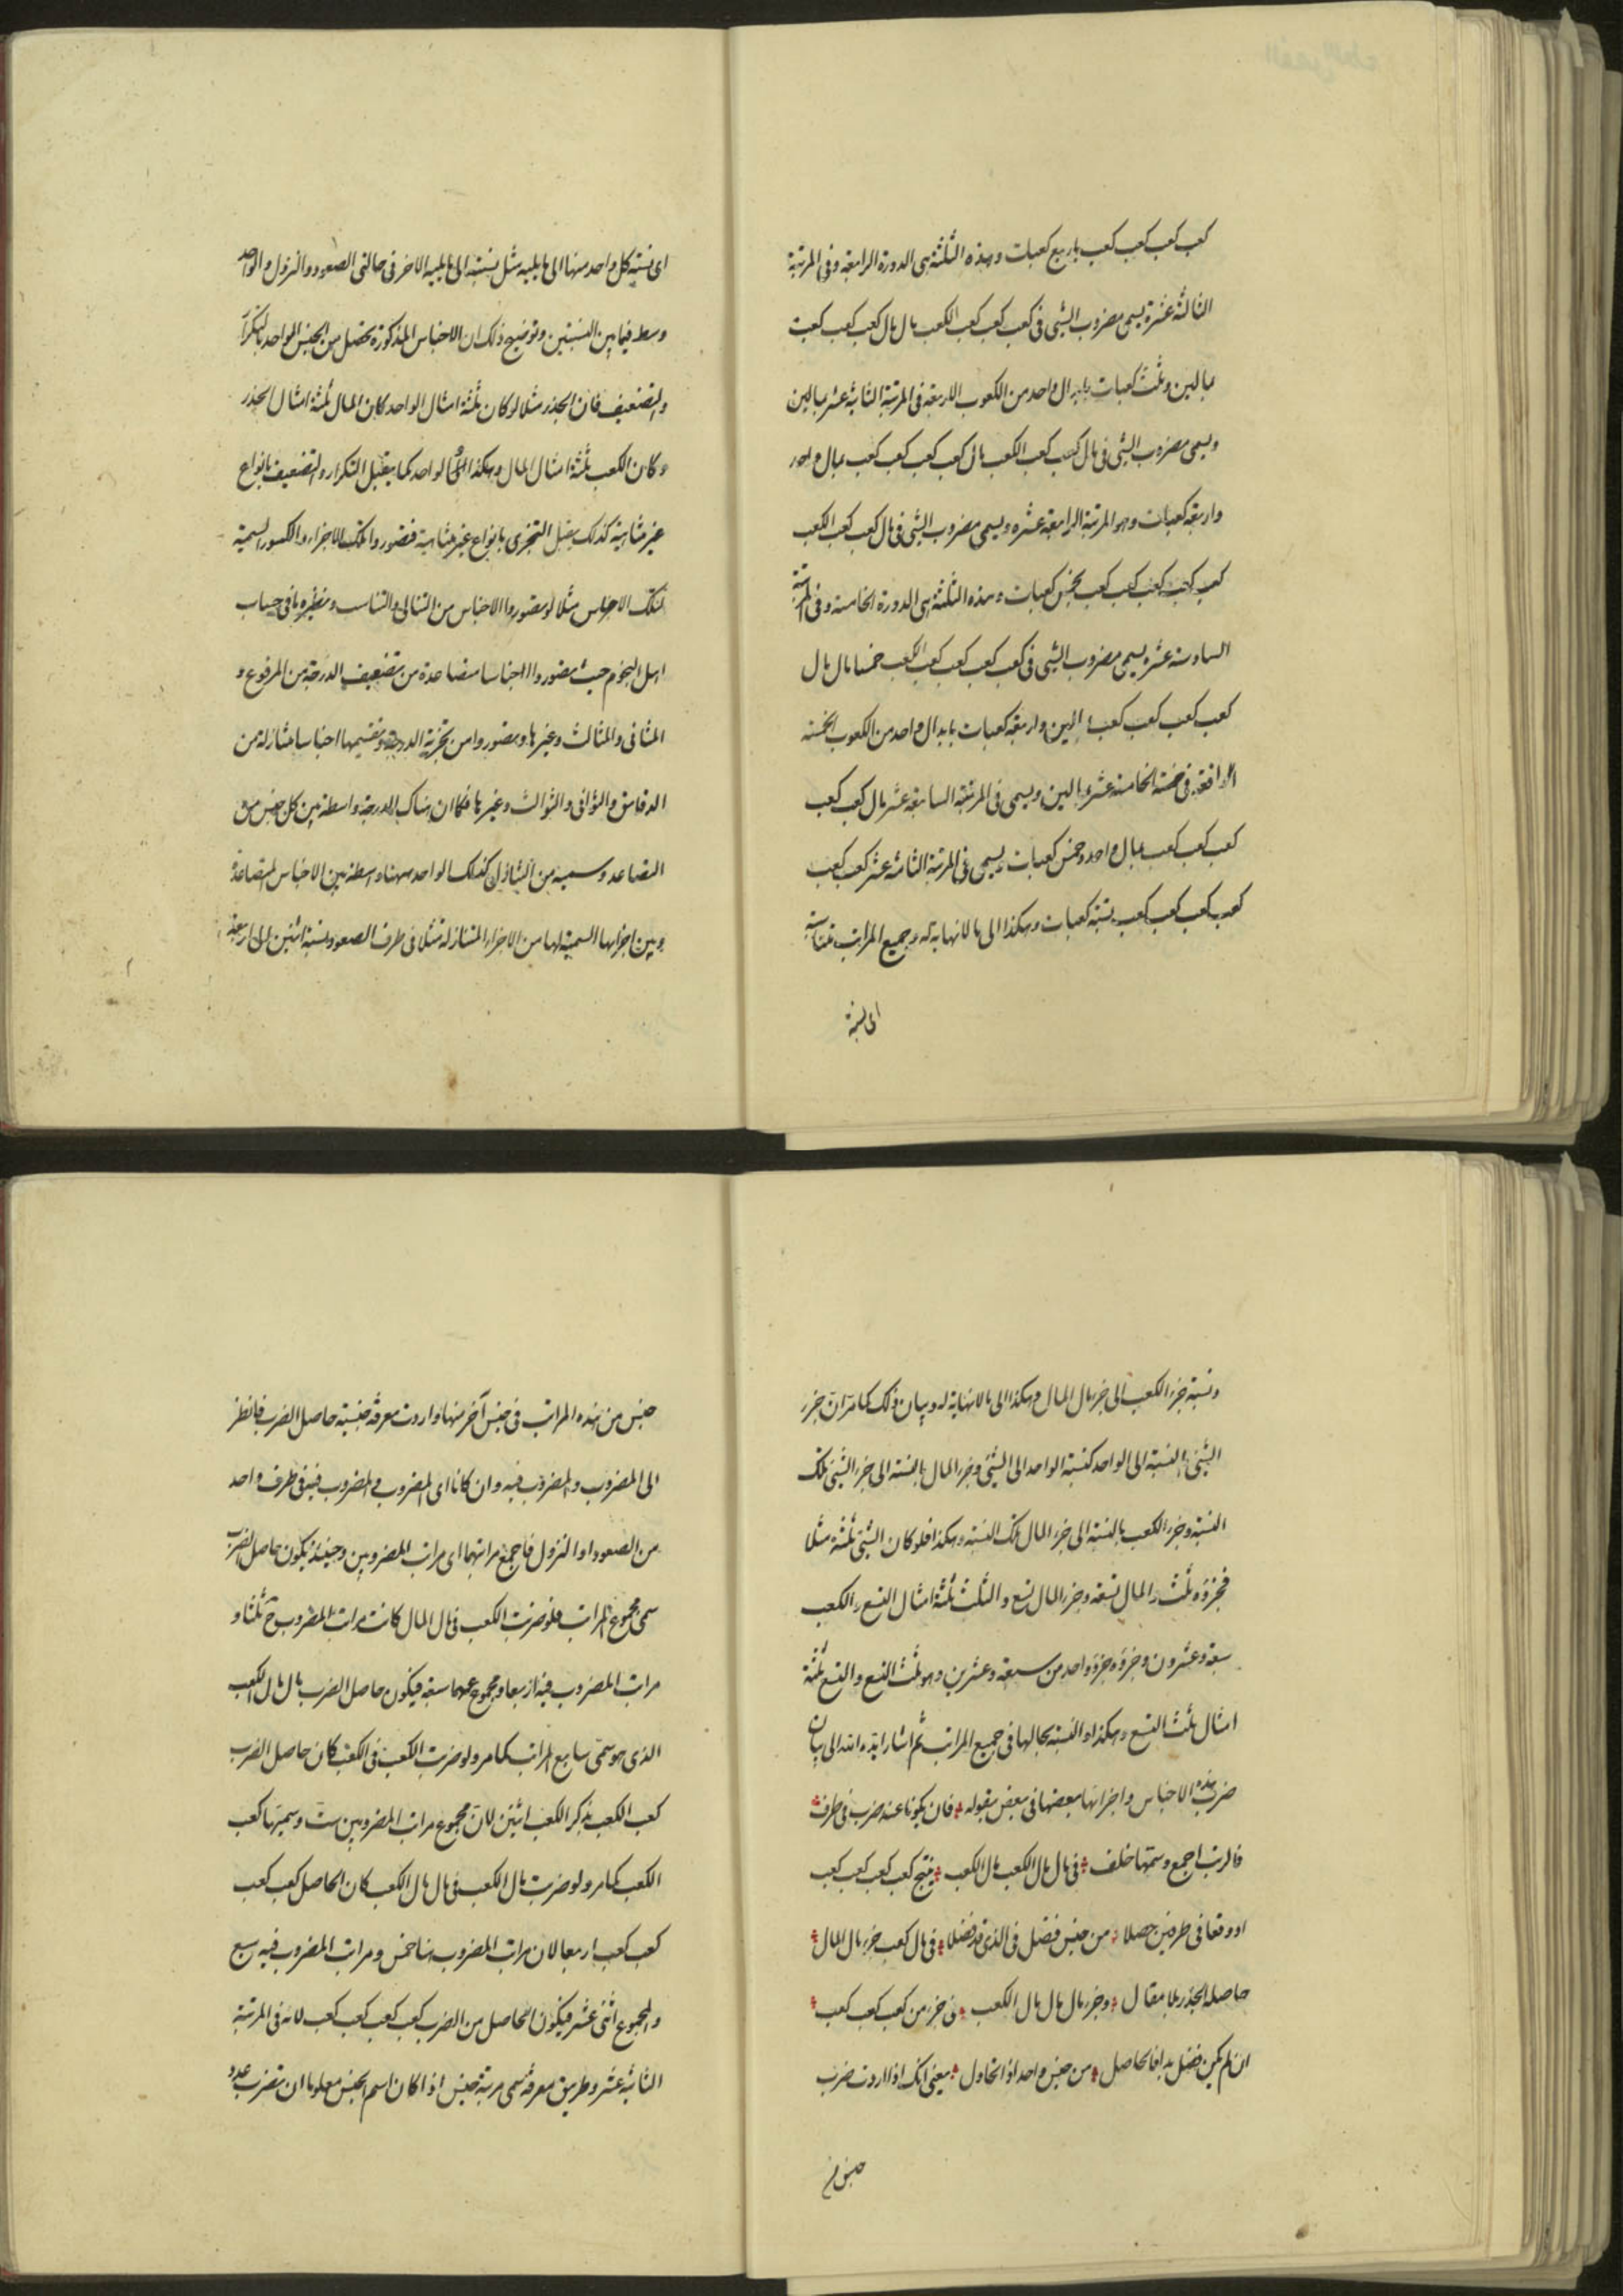 كعب كعب كعب كعب باربع كعبات وهذه الثلثة هى الدورة الرابعة وفى المرتبة
الثالثة عشرة يسمى مضروب الشئ فى كعب كعب كعب الكعب مال مال كعب كعب كعب
بمالين وثلث كعبات بابدال واحد من الكعوب الاربعة فى المرتبة الثانية عشر بمالين
ويسمى مضروب الشئ فى مال كعب كعب الكعب مال كعب كعب كعب كعب بمال واحد
واربعة كعبات وهو المرتبة الرابعة عشره ويسمى مضروب الشئ فى مال كعب كعب الكعب
كعب كعب كعب كعب كعب بخمس كعبات وهذه الثلثة هى الدورة الخامسة وفى المرتبة
السادسة عشره يسمى مضروب الشئ فى كعب كعب كعب كعب الكعب خمسا مال مال
كعب كعب كعب كعب بمالين واربعة كعبات بابدال واحد من الكعوب الخمسة
الواقعة فى خمسة الخامسة عشر بمالين ويسمى فى المرتبة السابعة عشر مال كعب كعب
كعب كعب كعب بمال واحد وخمس كعبات ويسمى فى المرتبة الثامنة عشر كعب كعب
كعب كعب كعب كعب بستة كعبات وهكذا الى ما لا نهاية له وجميع المراتب متناسبة
اى نسبة
اى نسبة كل واحد منها الى ما يليه مثل نسبته الى ما يليه الاخر فى حالتى الصعود والنزول والواحد
وسط فيما بين النسبتين وتوضيح ذلك ان الاجناس المذكورة تحصل من الجنس الواحد بتكرار
والتضعيف فان الجذر مثلا لو كان ثلثة امثال الواحد كان المال ثلثة امثال الجذر
وكان الكعب ثلثة امثال المال وهكذا الواحد كما يقبل التكرار والتضعيف بانواع
غير متناهية كذلك يقبل التجزى بانواع غير متناهية فتصوروا تلك الاجزاء والكسور السمية
لتلك الاجناس مثلا لو تصوروا الاجناس من التتالى والتناسب ونظيره ما فى حساب
اهل النجوم حيث تصوروا اجناسا متصاعدة من تضعيف الدرجة من المرفوع و
المثانى والمثالث وغيرها وتصوروا من تجزية الدرجة وتقسيمها اجناسا متنازلة من
الدقايق والثوانى والثوالث وغيرها فكما ان هناك الدرجة واسطة بين كل جنس من
التصاعد وسميه من التنازل كذلك الواحد ههنا واسطة بين الاجناس المتصاعدة
وبين اجزائها السمية لها من الاجزاء المتنازلة مثلا فى طرف الصعود نسبة اثنين الى اربعة
ونسبة جزء الكعب الى جزء مال المال وهكذا الى ما لا نهاية له وبيان ذلك كما مر ان جزء
الشئ بالنسبة الى الواحد كنسبة الواحد الى الشئ وجزء المال بالنسبة الى جزء الشئ تلك
النسبة وجزء الكعب بالنسبة الى جزء المال تلك النسبة وهكذا فلو كان الشئ ثلثة مثلا
فجزؤه ثلث والمال تسعة وجزء المال تسع والثلث ثلثة امثال التسع والكعب
سبعة وعشرون وجزؤه جزؤ واحد من سبعة وعشرين وهو ثلث التسع والتسع ثلثة
امثال ثلث التسع وهكذا والنسبة بحالها فى جميع المراتب ثم اشار ايده الله الى بيان
ضرب هذه الاجناس واجزائها بعضها فى بعض بقوله فان يكونا عند ضرب فى طرف
فالرتب اجمع وسمها خلف فى مال مال الكعب مال الكعب ينتج كعب كعب كعب كعب
او وقعا فى طرفين حصلا من جنس فضل فى الذى قد فضلا فى مال كعب جزء مال المال
حاصله الجذر بلا مقال وجزء مال مال مال الكعب فى جزء من كعب كعب كعب
ان لم يكن فضل بدا فالحاصل من جنس واحد اذ اتحاول يعنى انك اذا اردت ضرب
جنس من
جنس من هذه المراتب فى جنس آخر منها واردت معرفة جنسية حاصل الضرب فانظر
الى المضروب والمضروب فيه وان كانا اى المضروب والمضروب فيه فى طرف واحد
من الصعود او النزول فاجمع مراتبهما اى مراتب المضروبين وحينئذ يكون حاصل الضرب
سمى مجموع المراتب فلو ضربت الكعب فى مال المال كانت مراتب المضروب ح ثلثا و
مراتب المضروب فيه اربعا ومجموعهما سبعة فيكون حاصل الضرب مال مال الكعب
الذى هو سمى سابع المراتب كما مر ولو ضربت الكعب فى الكعب كان حاصل الضرب
كعب الكعب بذكر الكعب اثنين لان مجموع مراتب المضروبين ست وسميتها كعب
الكعب كما مر ولو ضربت مال الكعب فى مال مال الكعب كان الحاصل كعب كعب
كعب كعب اربعا لان مراتب المضروب هنا خمس ومراتب المضروب فيه سبع
والمجموع اثنى عشر فيكون الحاصل من الضرب كعب كعب كعب كعب لانه فى المرتبة
الثانية عشر وطريق معرفة سمى مرتبة جنس اذا كان اسم الجنس معلوما ان تضرب عدد